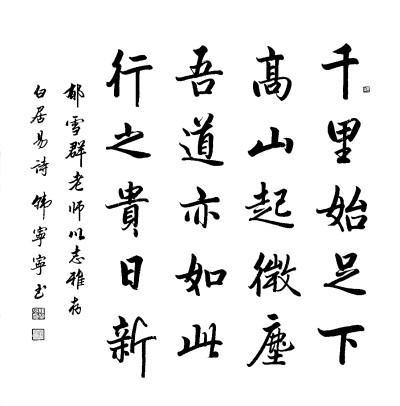 千里始足下
高山起微塵
吾道亦如此
行之貴日新
郁雪群老师以志雅存
白居易詩 韩寧寧书